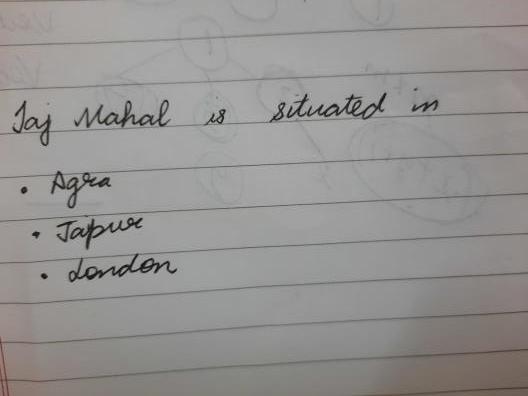 Taj Mahal is situated in
• Agra
• Jaipur
• London